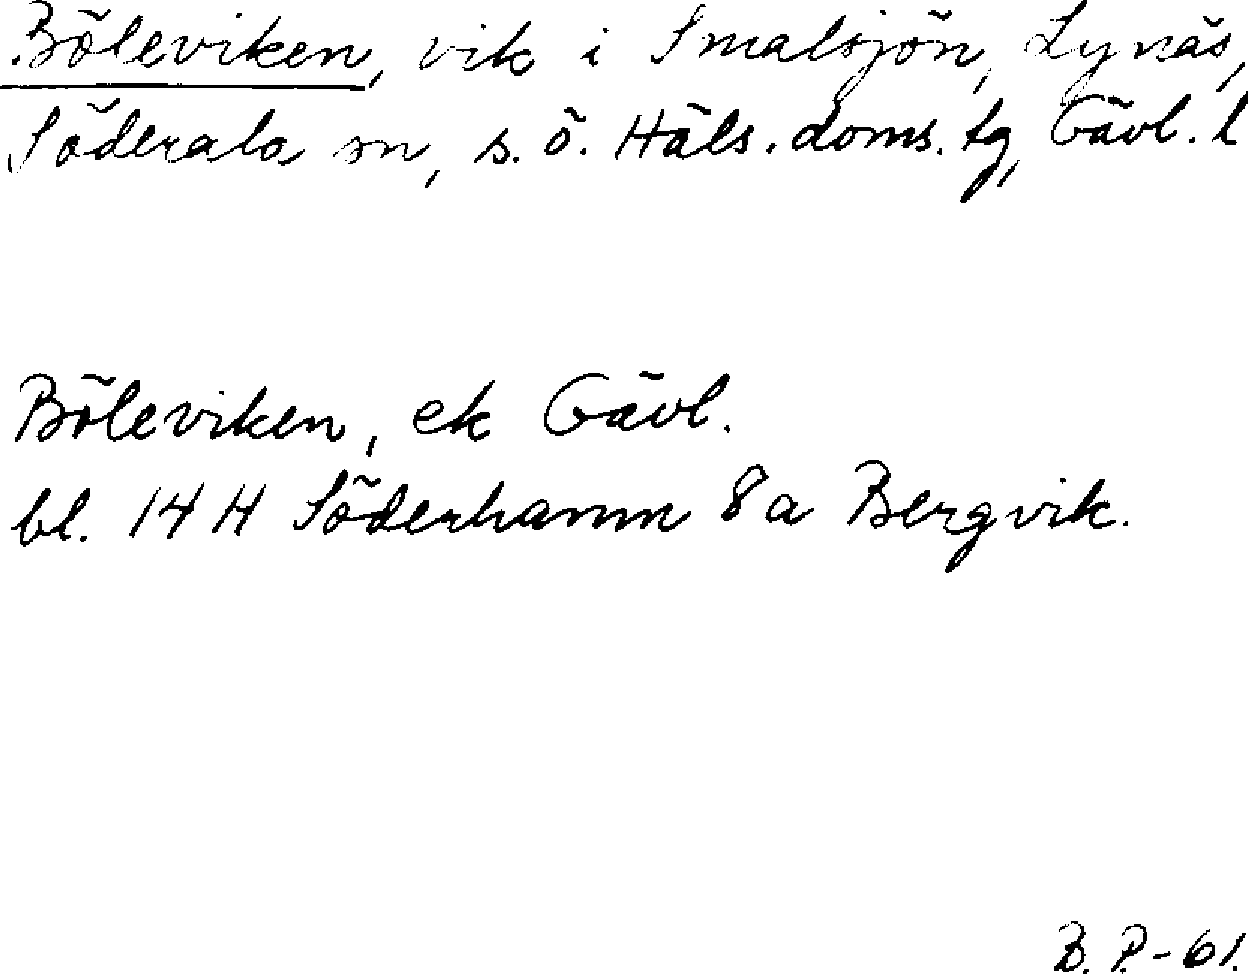 Böleviken, vik i Smalsjön, Lynäs,
Söderala sn, s. ö. Häls. doms. tg, Gävl. l
Böleviken, ek Gävl.
bl. 14 H Söderhamn 8 a Bergvik.
B. P. - 61.